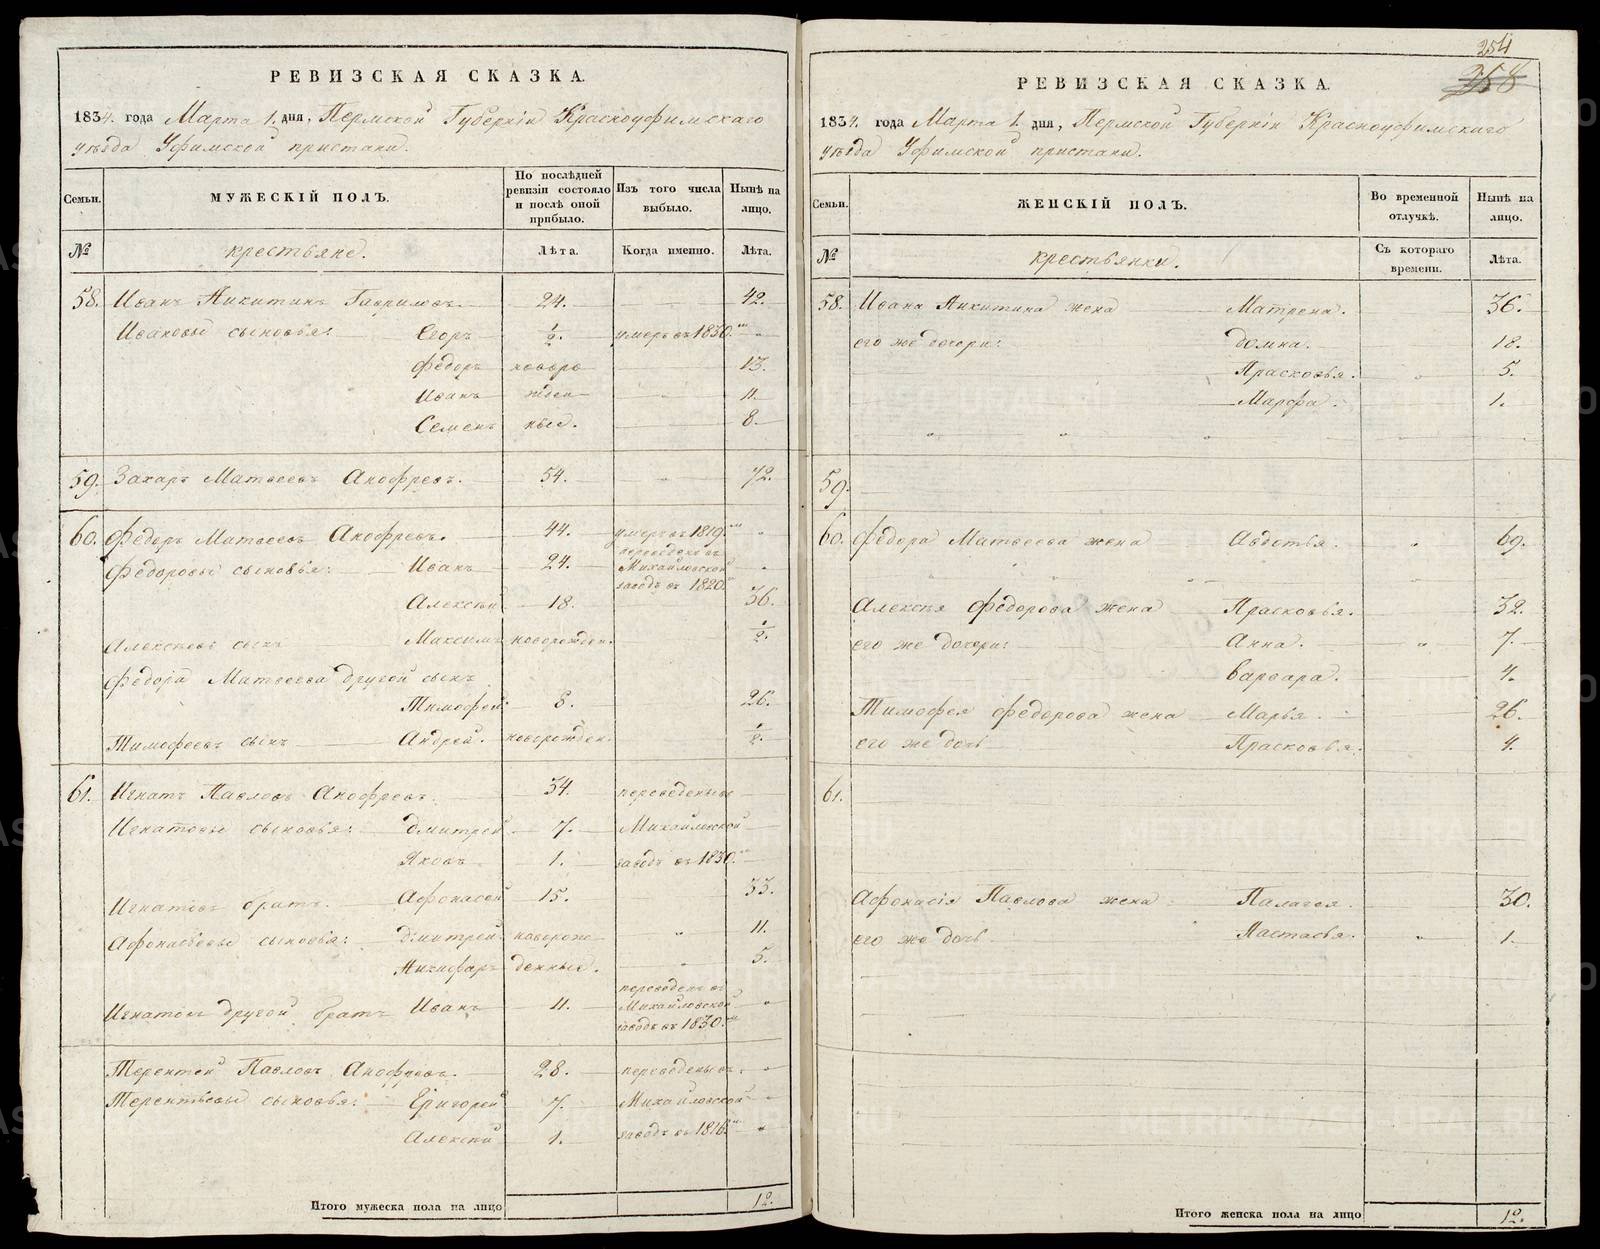 РЕВИЗСКАЯ СКАЗКА.
1834. года Марта 1. дня, Пермской Губерніи Красноуфимскаго
уѣзда Уфимской пристани.
Семьи. МУЖЕСКІЙ ПОЛЪ. По послѣдней ревизіи состояло и послѣ оной прибыло. Изъ того числа выбыло. Нынѣ на лицо.
№ крестьяне. Лѣта. Когда именно. Лѣта.
58. Иванъ Никитинъ Гавриловъ 24. 42.
Ивановы сыновья: Егоръ ½. умеръ въ 1830.мъ "
Федоръ новоро 13.
Иванъ жден 11.
Семенъ ные. 8.
59. Захаръ Матвеевъ Анофревъ. 54. 72.
60. Федоръ Матвеевъ Анофревъ. 44. умеръ въ 1819.мъ "
Федоровы сыновья: Иванъ 24. переведенъ въ Михайловской заводъ въ 1820.мъ "
Алексѣй 18. 36.
Алексѣевъ сынъ Максимъ новорожден. ½.
Федора Матвеева другой сынъ
Тимофей 8. 26.
Тимофеевъ сынъ Андрей. новорожден. ½.
61. Игнатъ Павловъ Анофревъ. 34. переведены въ
Игнатовы сыновья: Дмитрей 7. Михайловской
Яковъ 1. заводъ въ 1830.мъ
Игнатовъ братъ. Афонасей 15. 33.
Афонасьевы сыновья: Дмитрей новорож " 11.
Никифаръ денные. 5.
Игнатовъ другой братъ Иванъ 11. переведенъ въ Михайловской заводъ въ 1830.мъ "
Терентей Павловъ Анофревъ. 28. переведены въ "
Терентьевы сыновья: Григорей 7. Михайловской "
Алексѣй 1. заводъ въ 1816.мъ "
Итого мужеска пола на лицо 12.
254
358
РЕВИЗСКАЯ СКАЗКА.
1834. года Марта 1. дня, Пермской Губерніи Красноуфимскаго
уѣзда Уфимской пристани.
Семьи. ЖЕНСКІЙ ПОЛЪ. Во временной отлучкѣ. Нынѣ на лицо.
№ крестьянки. Съ котораго времени. Лѣта.
58. Ивана Никитина жена Матрена. 36.
его же дочери: Домна. 18.
Прасковья. " 5.
Марфа. 1.
59.
60. Федора Матвеева жена Авдотья. " 69.
Алексѣя Федорова жена Прасковья. 32.
его же дочери: Анна. " 7.
Варвара. 4.
Тимофея Федорова жена Марья. 26.
его же дочь Прасковья. 4.
61.
Афонасія Павлова жена Палагея. 30.
его же дочь Настасья. " 1.
Итого женска пола на лицо 12.